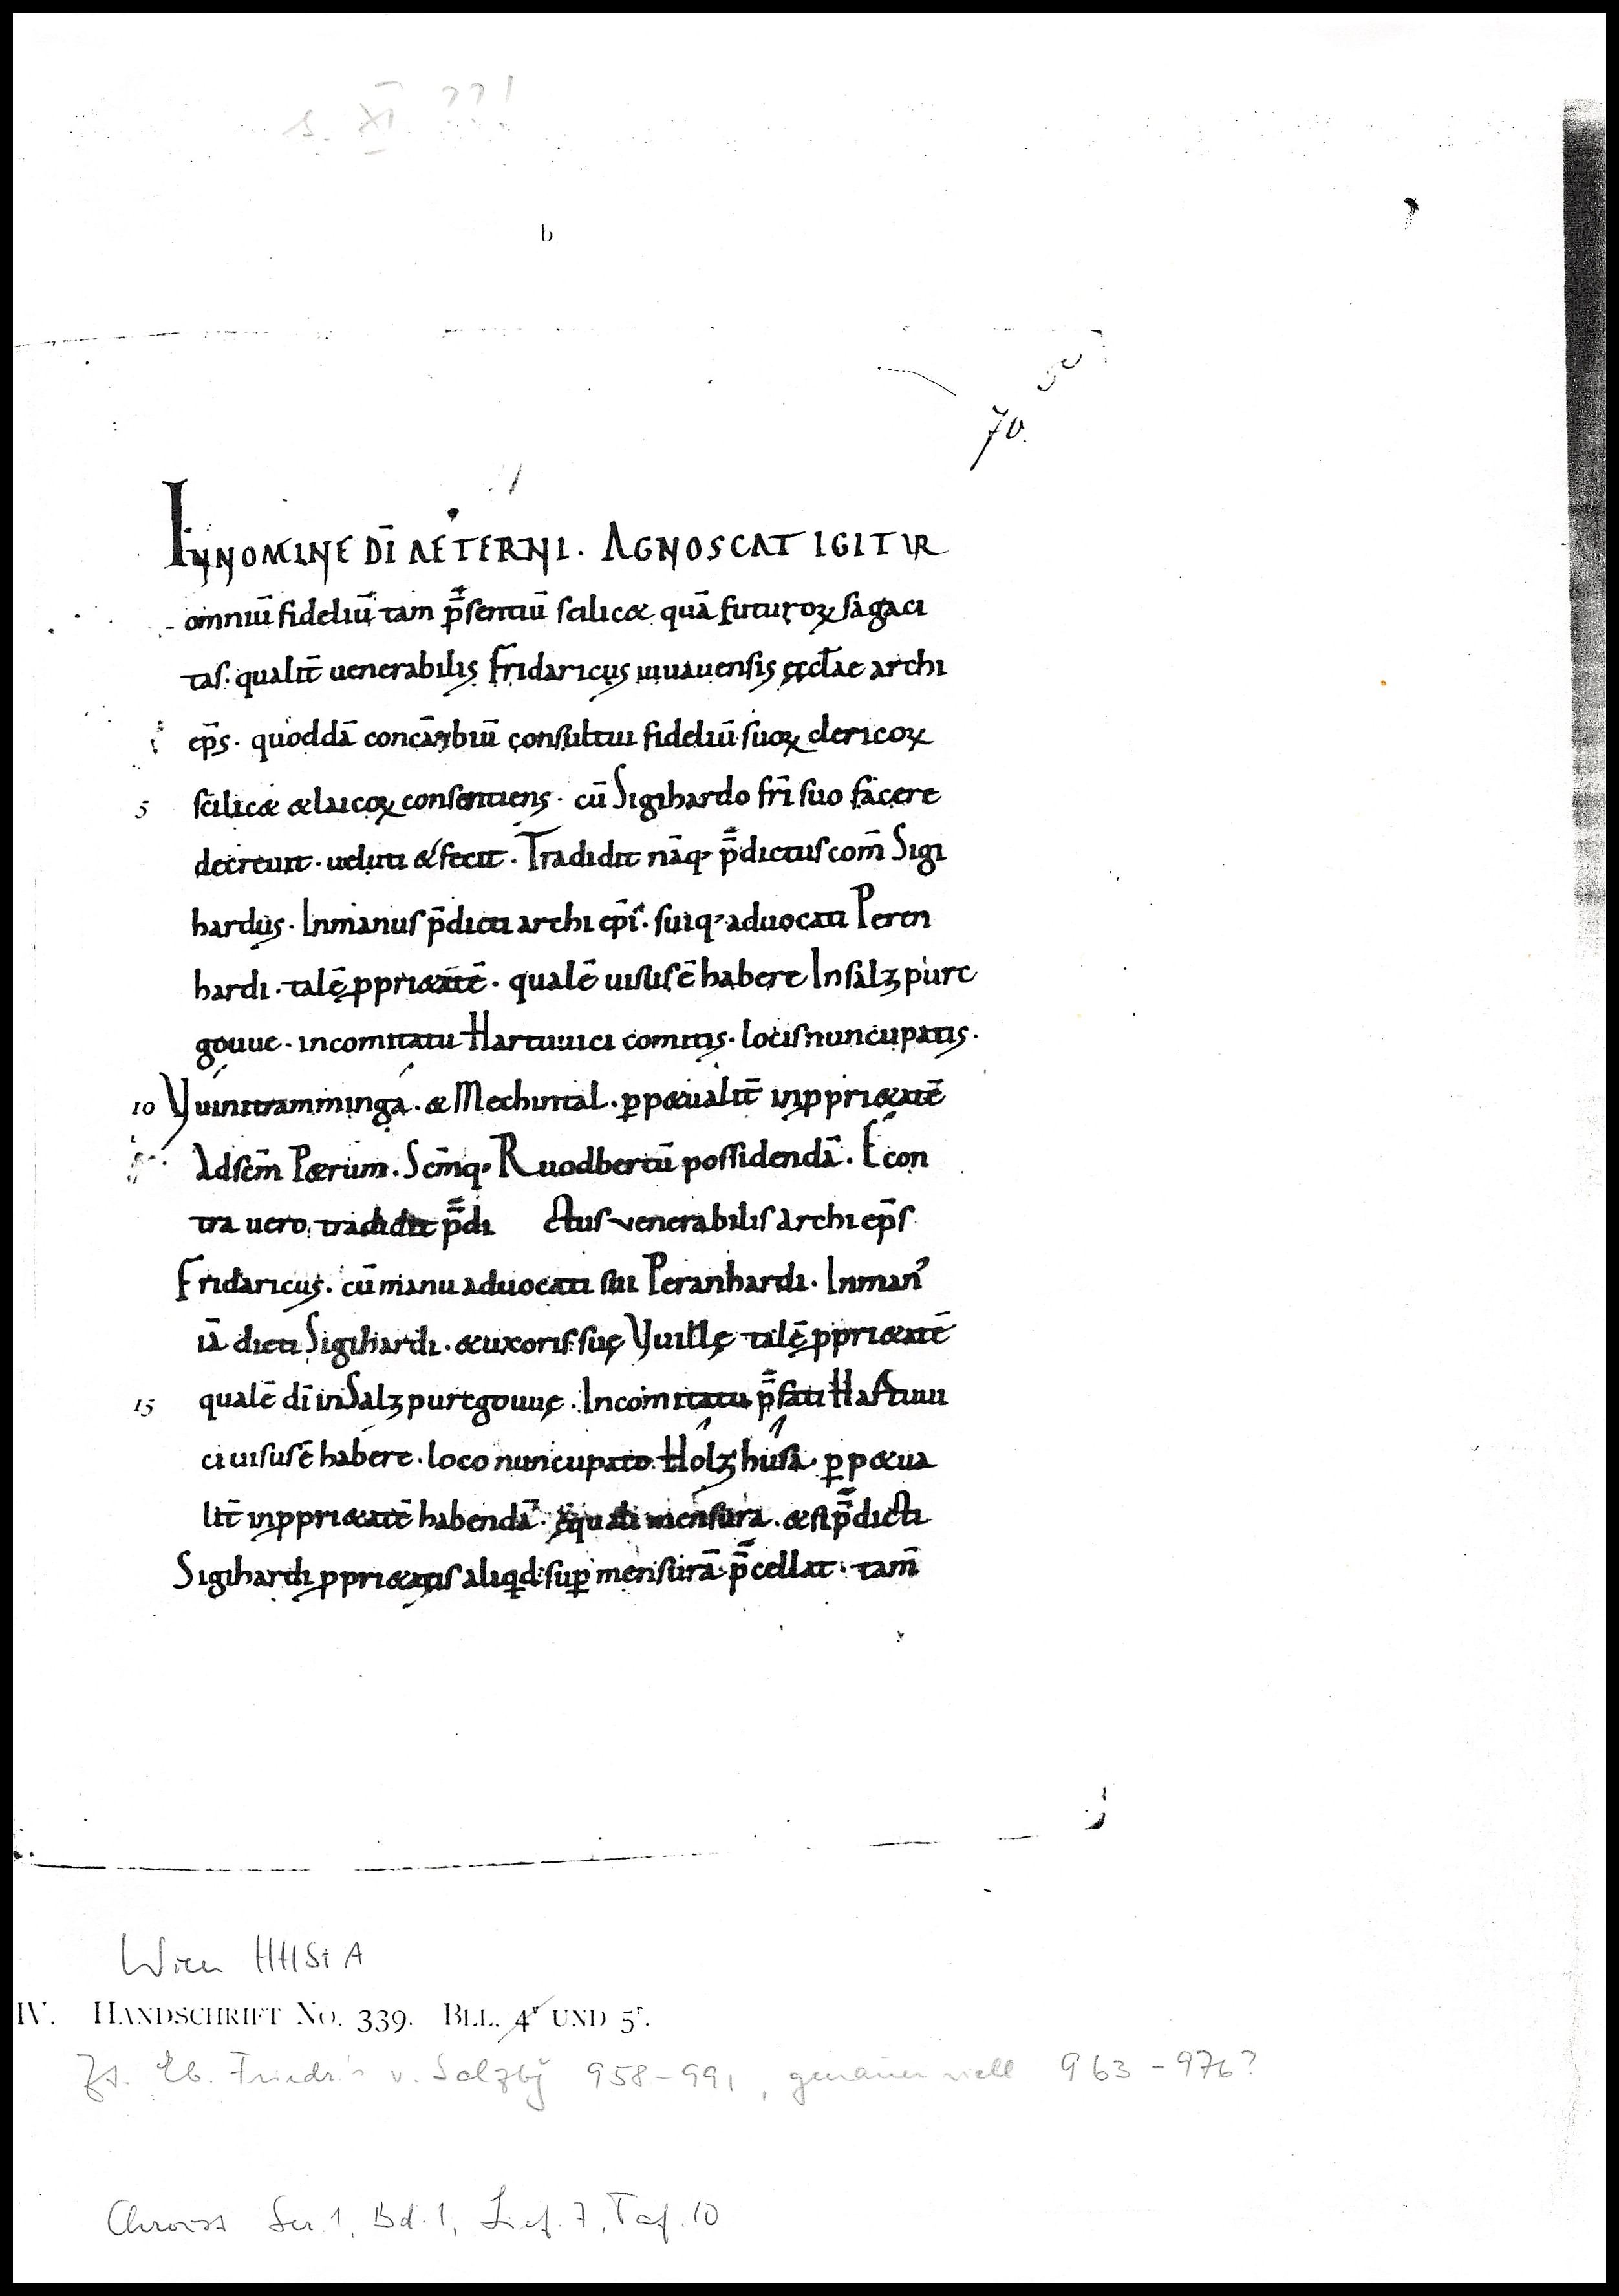 s. XI ??!
b
70.
INNOMINE DI̅ AETERNI. AGNOSCAT IGITUR
omniu̅ fideliu̅ tam p̅sentiu̅ scilic& qua̅ futuroꝝ sagaci
tas· qualit̅ uenerabilis Fridaricus iuuauensis ęccl̅ae archi
ep̅s· quodda̅ conca̅mbiu̅ consultui fideliu̅ suoꝝ clericoꝝ
5 scilic& &laicoꝝ consentiens· cu̅ Sigihardo fr̅i suo facere
decreuit· ueluti & fecit· Tradidit na̅q· p̅dictus com̅ Sigi
hardus· Inmanus p̅dicti archi ep̅i· suiq· aduocati Peren
hardi· tale̅ ꝓpri&ate̅· quale̅ uisuse̅ habere In salzpurc
gouue· incomitatu Hartuuici comitis· locis nuncupatis·
10 Vuinitramminga· & Mechintal· ꝑp&ualit̅ inꝓpri&ate̅
Adsc̅m P&rum· Sc̅mq· Ruodbertu̅ possidenda̅· Econ
tra uero tradidit p̅di ctus venerabilis archi ep̅s
Fridaricus· cu̅ manu aduocati sui Peranhardi· Inman᾽
ia̅ dicti Sigihardi· &uxoris suę Vuillę tale̅ ꝓpri&ate̅
15 quale̅ di̅ in Salzpurcgouuę· Incomitatu p̅fati Hartuui
ci uisuse̅ habere· loco nuncupato Holzhusa· ꝑp&ua
lit̅ inꝓpri&ate̅ habenda̅· ęquali mensura· &si p̅dicti
Sigihardi ꝓpri&atis aliqd· suꝑ mensura̅ p̅cellat· tam̅
Wien HHStA
IV. HANDSCHRIFT NO. 339. BLL. 4v UND 5r.
Zt. Eb. Friedr's v. Salzbg 958-991, genauer viell 963-976?
Chroust Ser. 1, Bd. 1, Lief. 7, Taf. 10